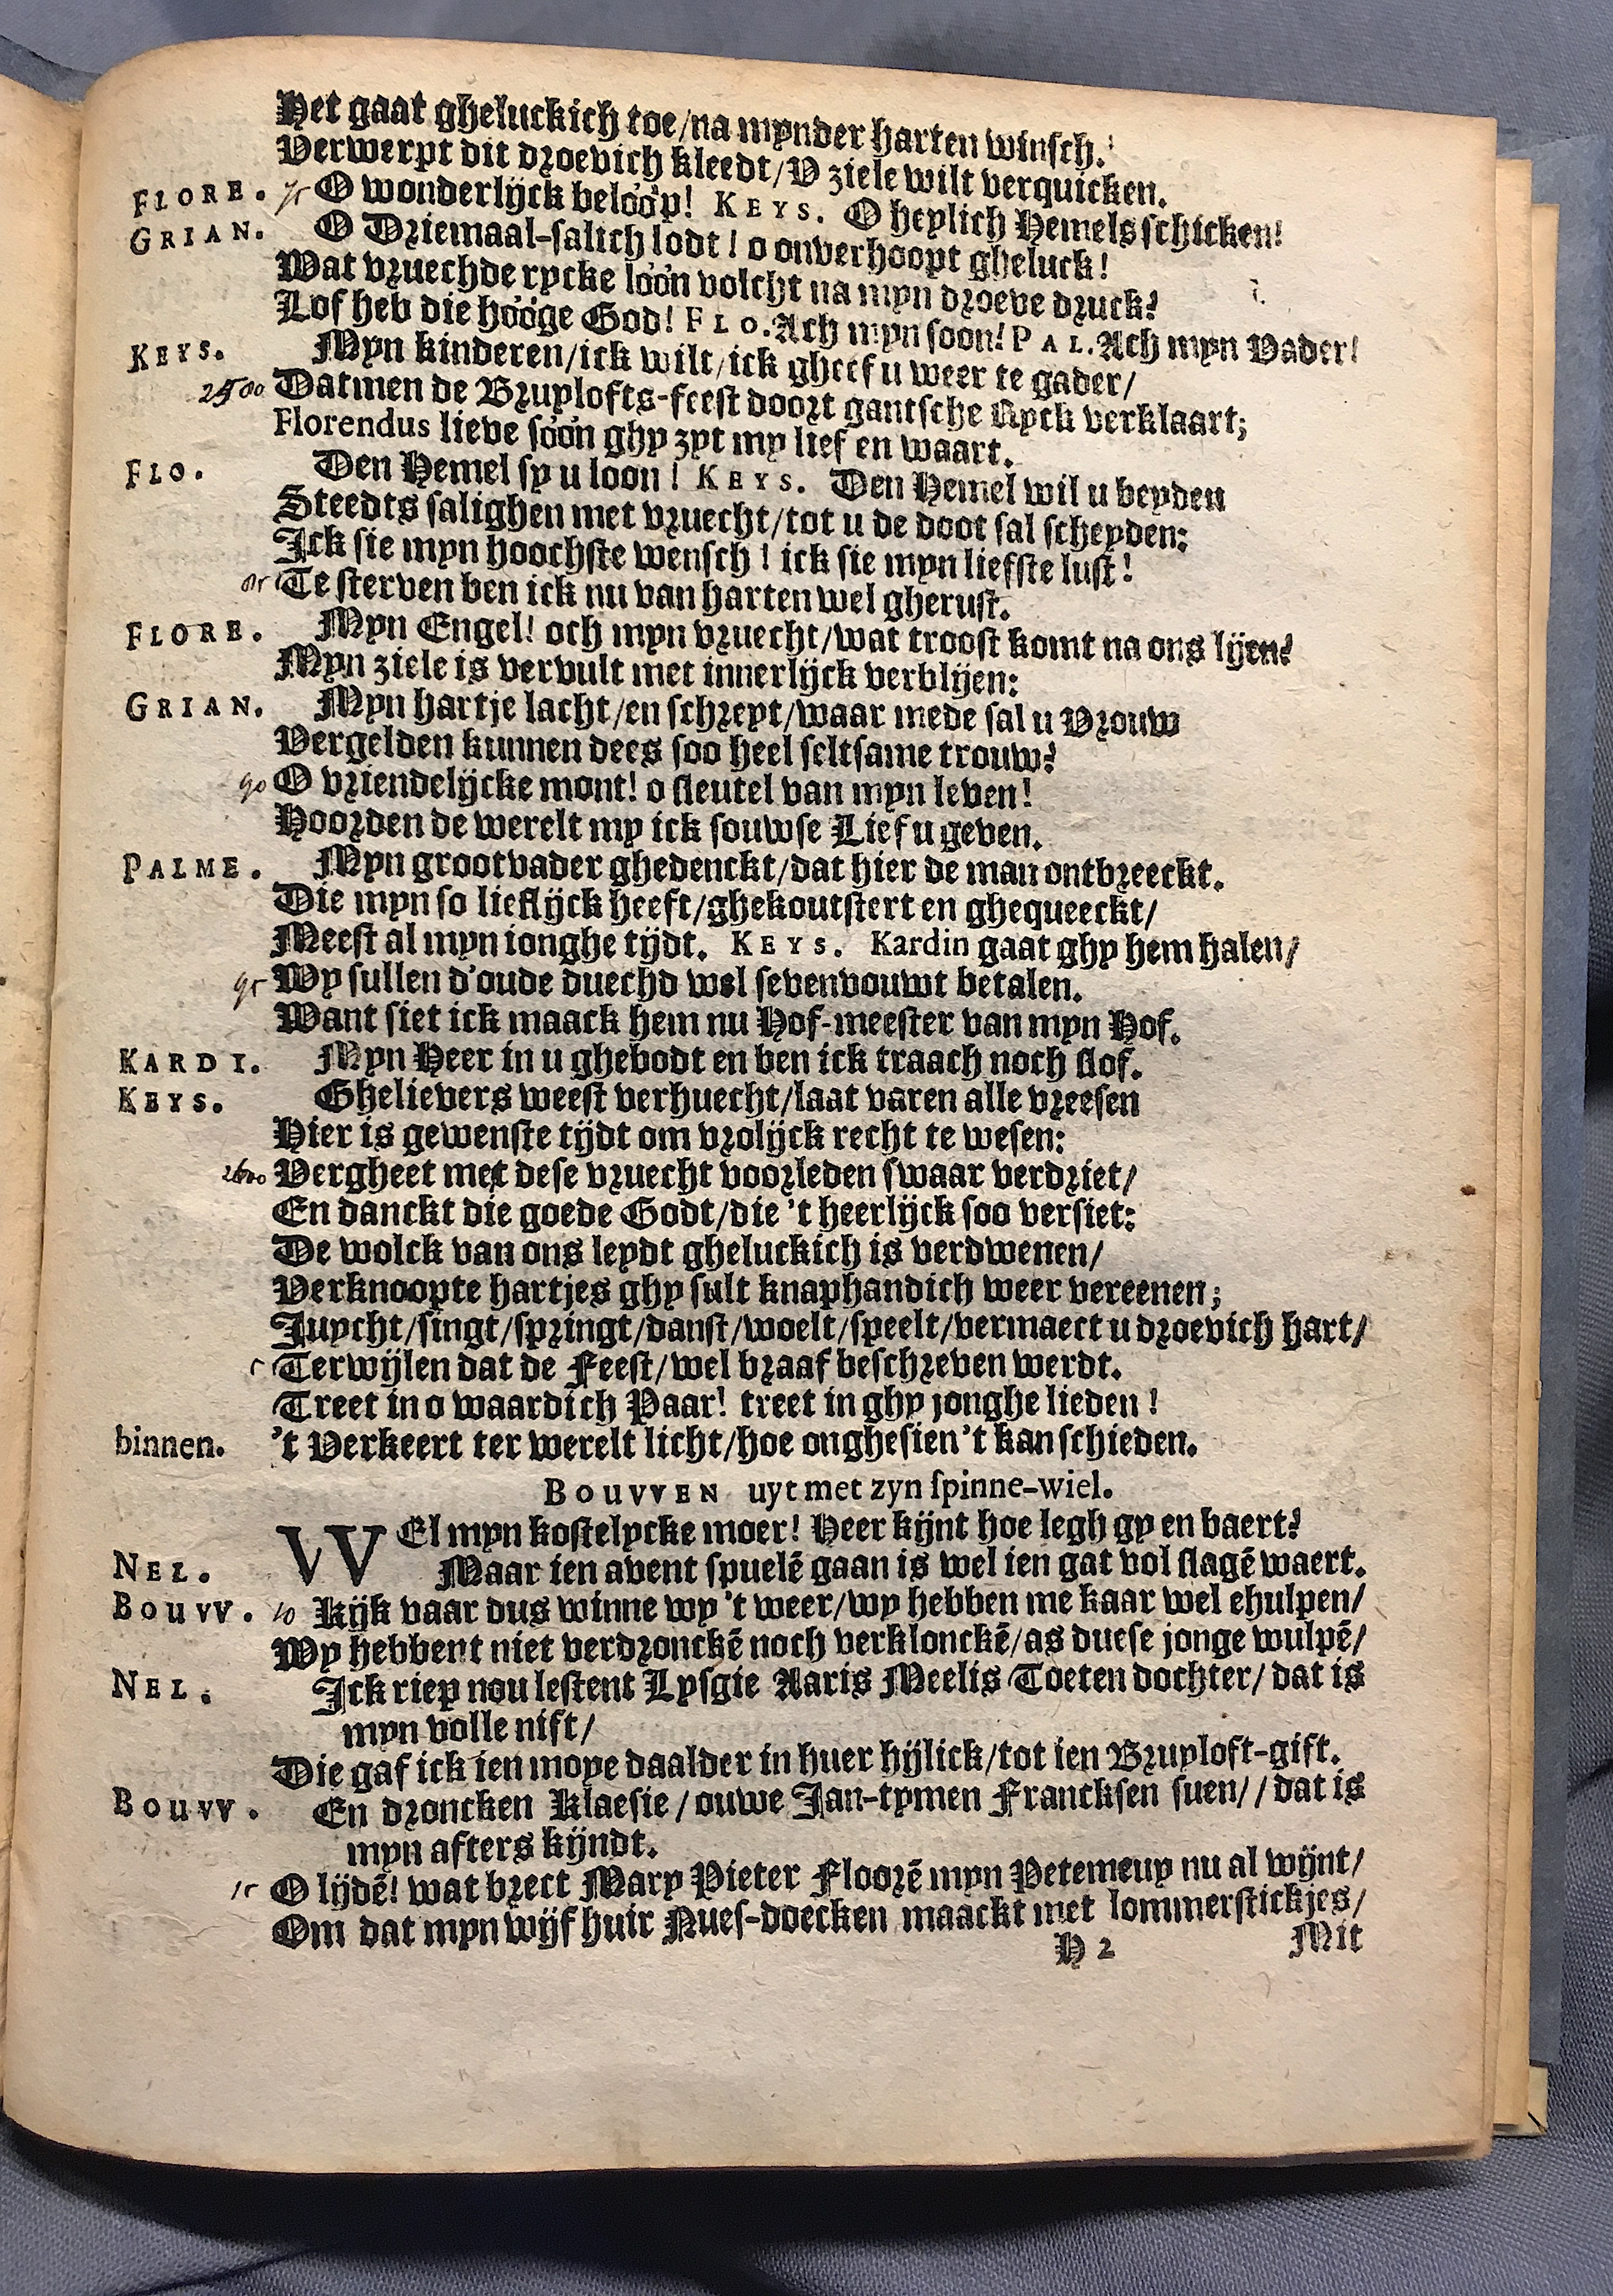 Het gaat gheluckich toe/na mynder harten winsch.
Verwerpt dit droevich kleedt/V ziele wilt verquicken.
FLORE. 75 O wonderlijck belóóp! KEYS. O heylich Hemels schicken!
GRIAN. O Driemaal-salich lodt! o onverhoopt gheluck!
Wat vruechde rycke lóón volcht na myn droeve druck?
Lof heb die hóóge God! FLO. Ach myn soon! PAL. Ach myn Vader!
KEYS. Myn kinderen/ick wilt/ick gheef u weer te gader/
2580 Datmen de Bruylofts-feest doort gantsche Ryck verklaart;
Florendus lieve sóón ghy zyt my lief en waart.
FLO. Den Hemel sy u loon! KEYS. Den Hemel wil u beyden
Steedts salighen met vruecht/tot u de doot sal scheyden:
Ick sie myn hoochste wensch! ick sie myn liefste lust!
85 Te sterven ben ick nu van harten wel gherust.
FLORE. Myn Engel! och myn vruecht/wat troost komt na ons lijen?
Myn ziele is vervult met innerlijck verblijen:
GRIAN. Myn hartje lacht/en schreyt/waar mede sal u Vrouw
Vergelden kunnen dees soo heel seltsame trouw?
90 O vriendelijcke mont! o sleutel van myn leven!
Hoorden de werelt my ick souwse Lief u geven.
PALME. Myn grootvader ghedenckt/dat hier de man ontbreeckt.
Die myn so lieflijck heeft/ghekoutstert en ghequeeckt/
Meest al myn ionghe tijdt. KEYS. Kardin gaat ghy hem halen/
95 Wy sullen d'oude duechd wel sevenvouwt betalen.
Want siet ick maack hem nu Hof-meester van myn Hof.
KARDI. Myn Heer in u ghebodt en ben ick traach noch slof.
KEYS. Ghelievers weest verhuecht/laat varen alle vreesen
Hier is gewenste tijdt om vrolijck recht te wesen:
2600 Vergheet met dese vruecht voorleden swaar verdriet/
En danckt die goede Godt/die 't heerlijck soo versiet:
De wolck van ons leydt gheluckich is verdwenen/
Verknoopte hartjes ghy sult knaphandich weer vereenen;
Juycht/singt/springt/danst/woelt/speelt/vermaect u droevich hart/
5 Terwijlen dat de Feest/wel braaf beschreven werdt.
Treet in o waardich Paar! treet in ghy jonghe lieden!
binnen. 't Verkeert ter werelt licht/hoe onghesien't kan schieden.
BOUVVEN uyt met zyn spinne-wiel.
WEl myn kostelycke moer! Heer kijnt hoe legh gy en baert?
NEL. Maar ien avent spuelē gaan is wel ien gat vol slagē waert.
BOUVV. 10 Kijk vaar dus winne wy 't weer/wy hebben me kaar wel ehulpen/
Wy hebbent niet verdronckē noch verklonckē/as duese jonge wulpē/
NEL. Ick riep nou lestent Lysgie Aaris Meelis Toeten dochter/dat is
myn volle nift/
Die gaf ick ien moye daalder in huer hijlick/tot ien Bruyloft-gift.
BOUVV. En droncken Klaesie/ouwe Jan-tymen Francksen suen//dat is
myn afters kijndt.
15 O lijdē! wat brect Mary Pieter Floorē myn Petemeuy nu al wijnt/
Om dat myn wijf huir Nues-doecken maackt met lommerstickjes/
H 2 Mit